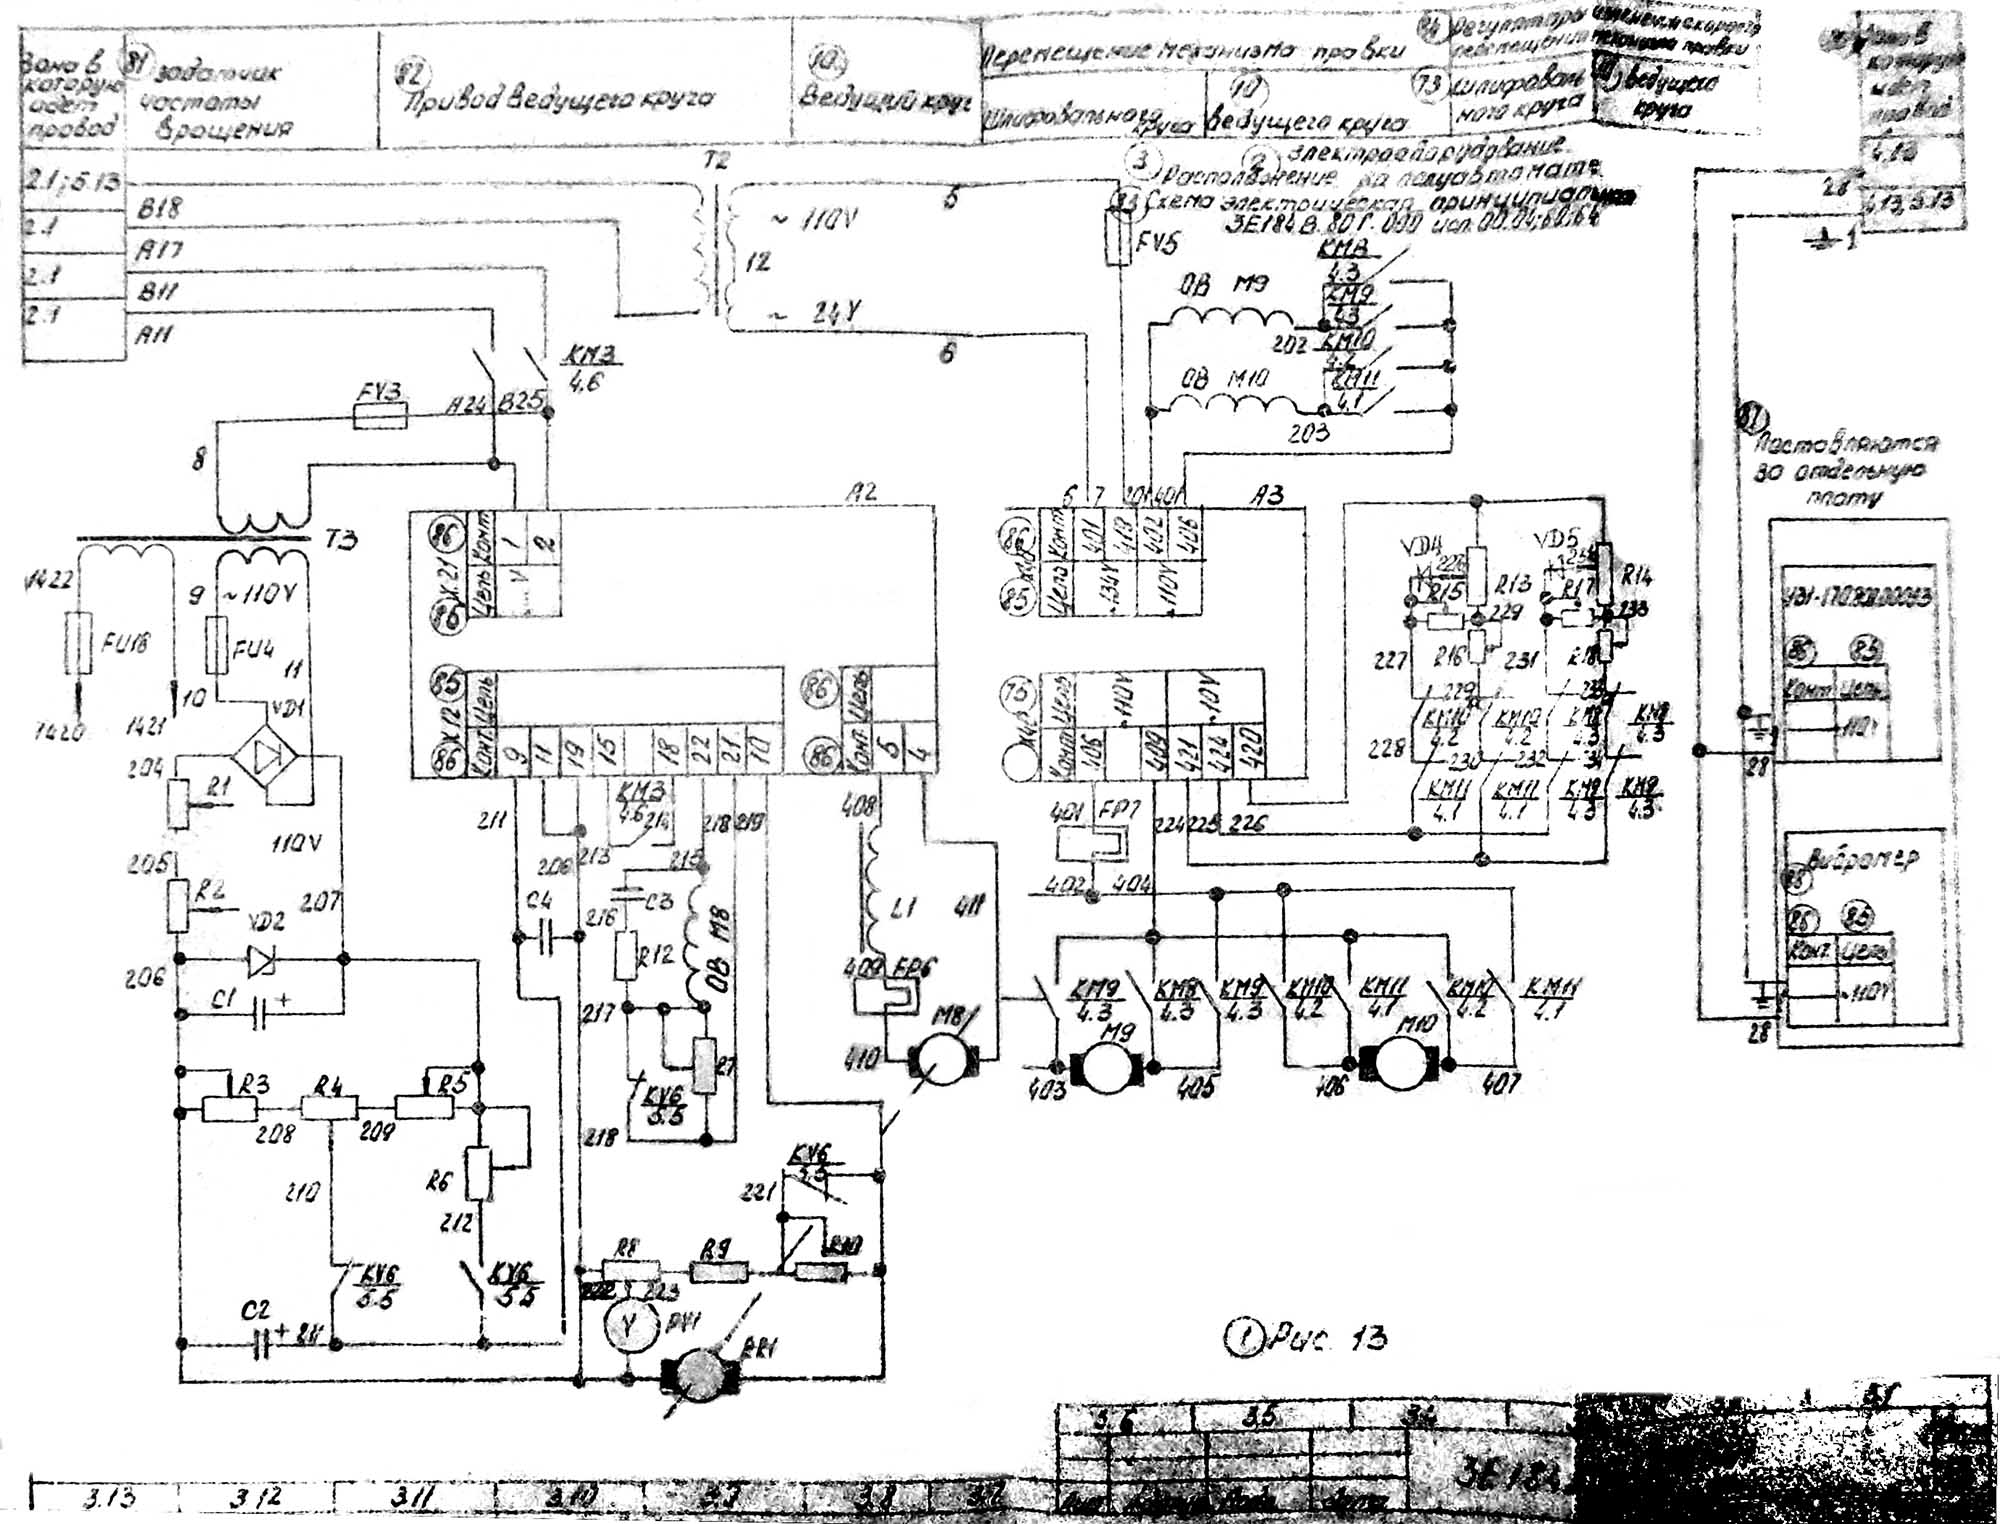 Зона в
которую
идет
провод
81
задатчик
частоты
вращения
82
Привод ведущего круга
10
Ведущий круг
Перемещение механизма правки
Шлифовального
круга
10
Ведущего круга
Регулятора
перемещения
73
Шлифоваль
ного круга
ведущего
круга
2.1; 5.13
B18
2.1
A17
2.1
B11
2.1
A11
T2
~ 110V
12
~ 24V
5
6
3
2
Электрооборудование.
Расположение на полуавтомате
Схема электрическая принципиальная
3E184В.80Г.000 исп.00.04;60;64
FV5
28
4.13, 5.13
1
KM3
4.6
FV3
A24
B25
8
T3
1422
9
~110V
FU18
FU4
11
10
1420
1421
VD1
204
R1
110V
205
R2
207
VD2
206
C1
+
R3
R4
R5
208
209
210
R6
212
KV6
5.5
KV6
5.5
C2
+
211
A2
86
X21
86
Конт
Цепь
1
2
V
85
X12
86
Цепь
Конт
9
11
19
15
18
22
21
10
86
Цепь
86
Конт
5
4
211
KM3
4.6
214
213
215
218
219
C4
C3
216
R12
ОВ М8
217
R7
KV6
5.5
218
408
L1
411
409
FP6
410
M8
KV6
5.5
221
R8
R9
R10
222
223
V
PV1
BR1
ОВ М9
202
KM8
4.3
KM9
4.3
KM10
4.2
KM11
4.1
ОВ М10
203
6
7
201
401
A3
86
85
Конт
Цепь
401
418
402
406
~134V
~110V
75
Цепь
Конт
~110V
~10V
406
409
421
424
420
401
FP7
402
404
224
225
226
VD4
VD5
R15
R13
R17
R14
229
233
R16
R18
227
231
229
228
230
232
KM10
4.2
KM10
4.2
KM8
4.3
KM8
4.3
KM11
4.1
KM11
4.1
KM9
4.3
KM9
4.3
KM9
4.3
KM8
4.3
KM9
4.3
KM10
4.2
KM11
4.1
KM10
4.2
KM11
4.1
M9
M10
403
405
406
407
Поставляются
за отдельную
плату
86
85
Конт
Цепь
~110V
28
Виброметр
86
85
Конт
Цепь
~110V
28
1
Рис. 13
3.6
3.5
3.4
3E184
3.13
3.12
3.11
3.10
3.9
3.8
3.7